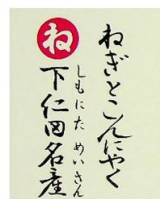 ねぎとこんにやく
ね
しもにためいさん
下仁田名産